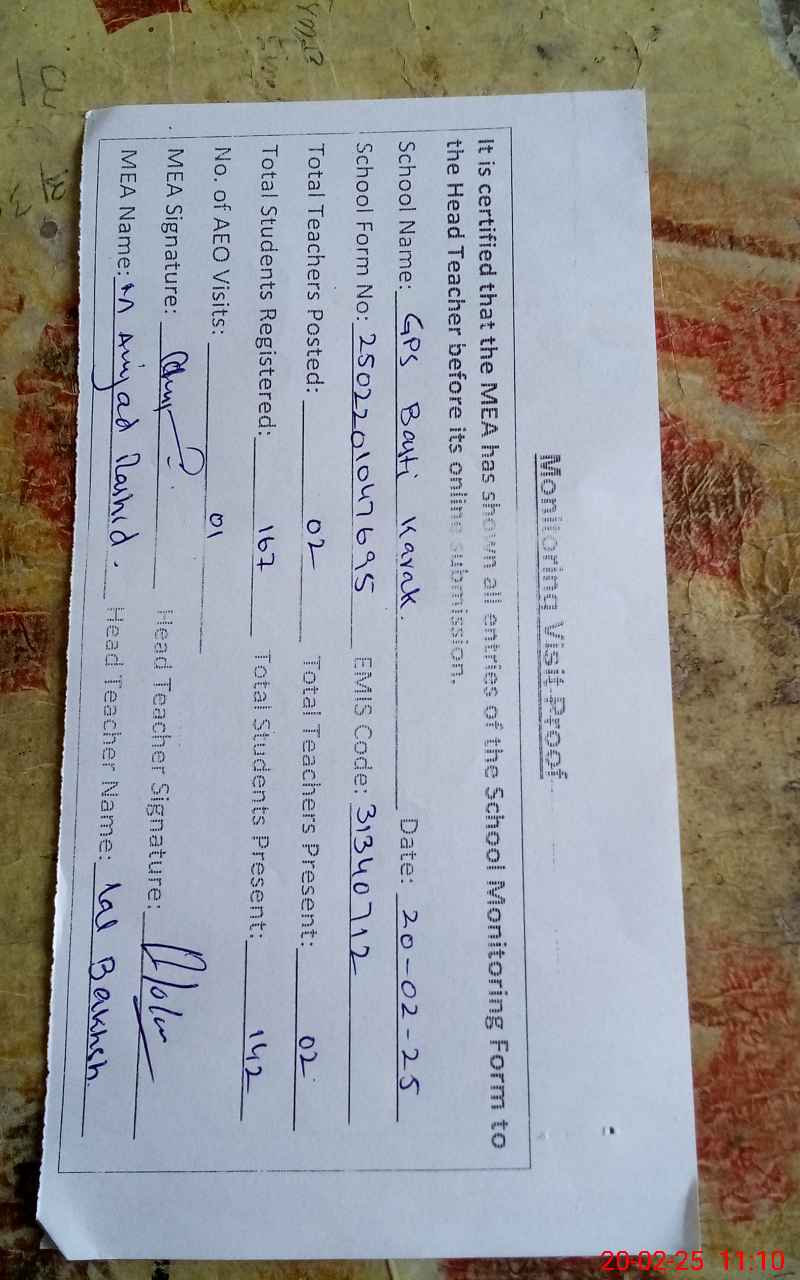 Monitoring Visit Proof
It is certified that the MEA has shown all entries of the School Monitoring Form to
the Head Teacher before its online submission.
School Name: GPS Basti Karak. Date: 20-02-25
School Form No: 2502201047695 EMIS Code: 31340712
Total Teachers Posted: 02 Total Teachers Present: 02
Total Students Registered: 167 Total Students Present: 142
No. of AEO Visits: 01
MEA Signature: Head Teacher Signature:
MEA Name: M Amjad Rashid. Head Teacher Name: Lal Bakhsh.
20-02-25 11:10